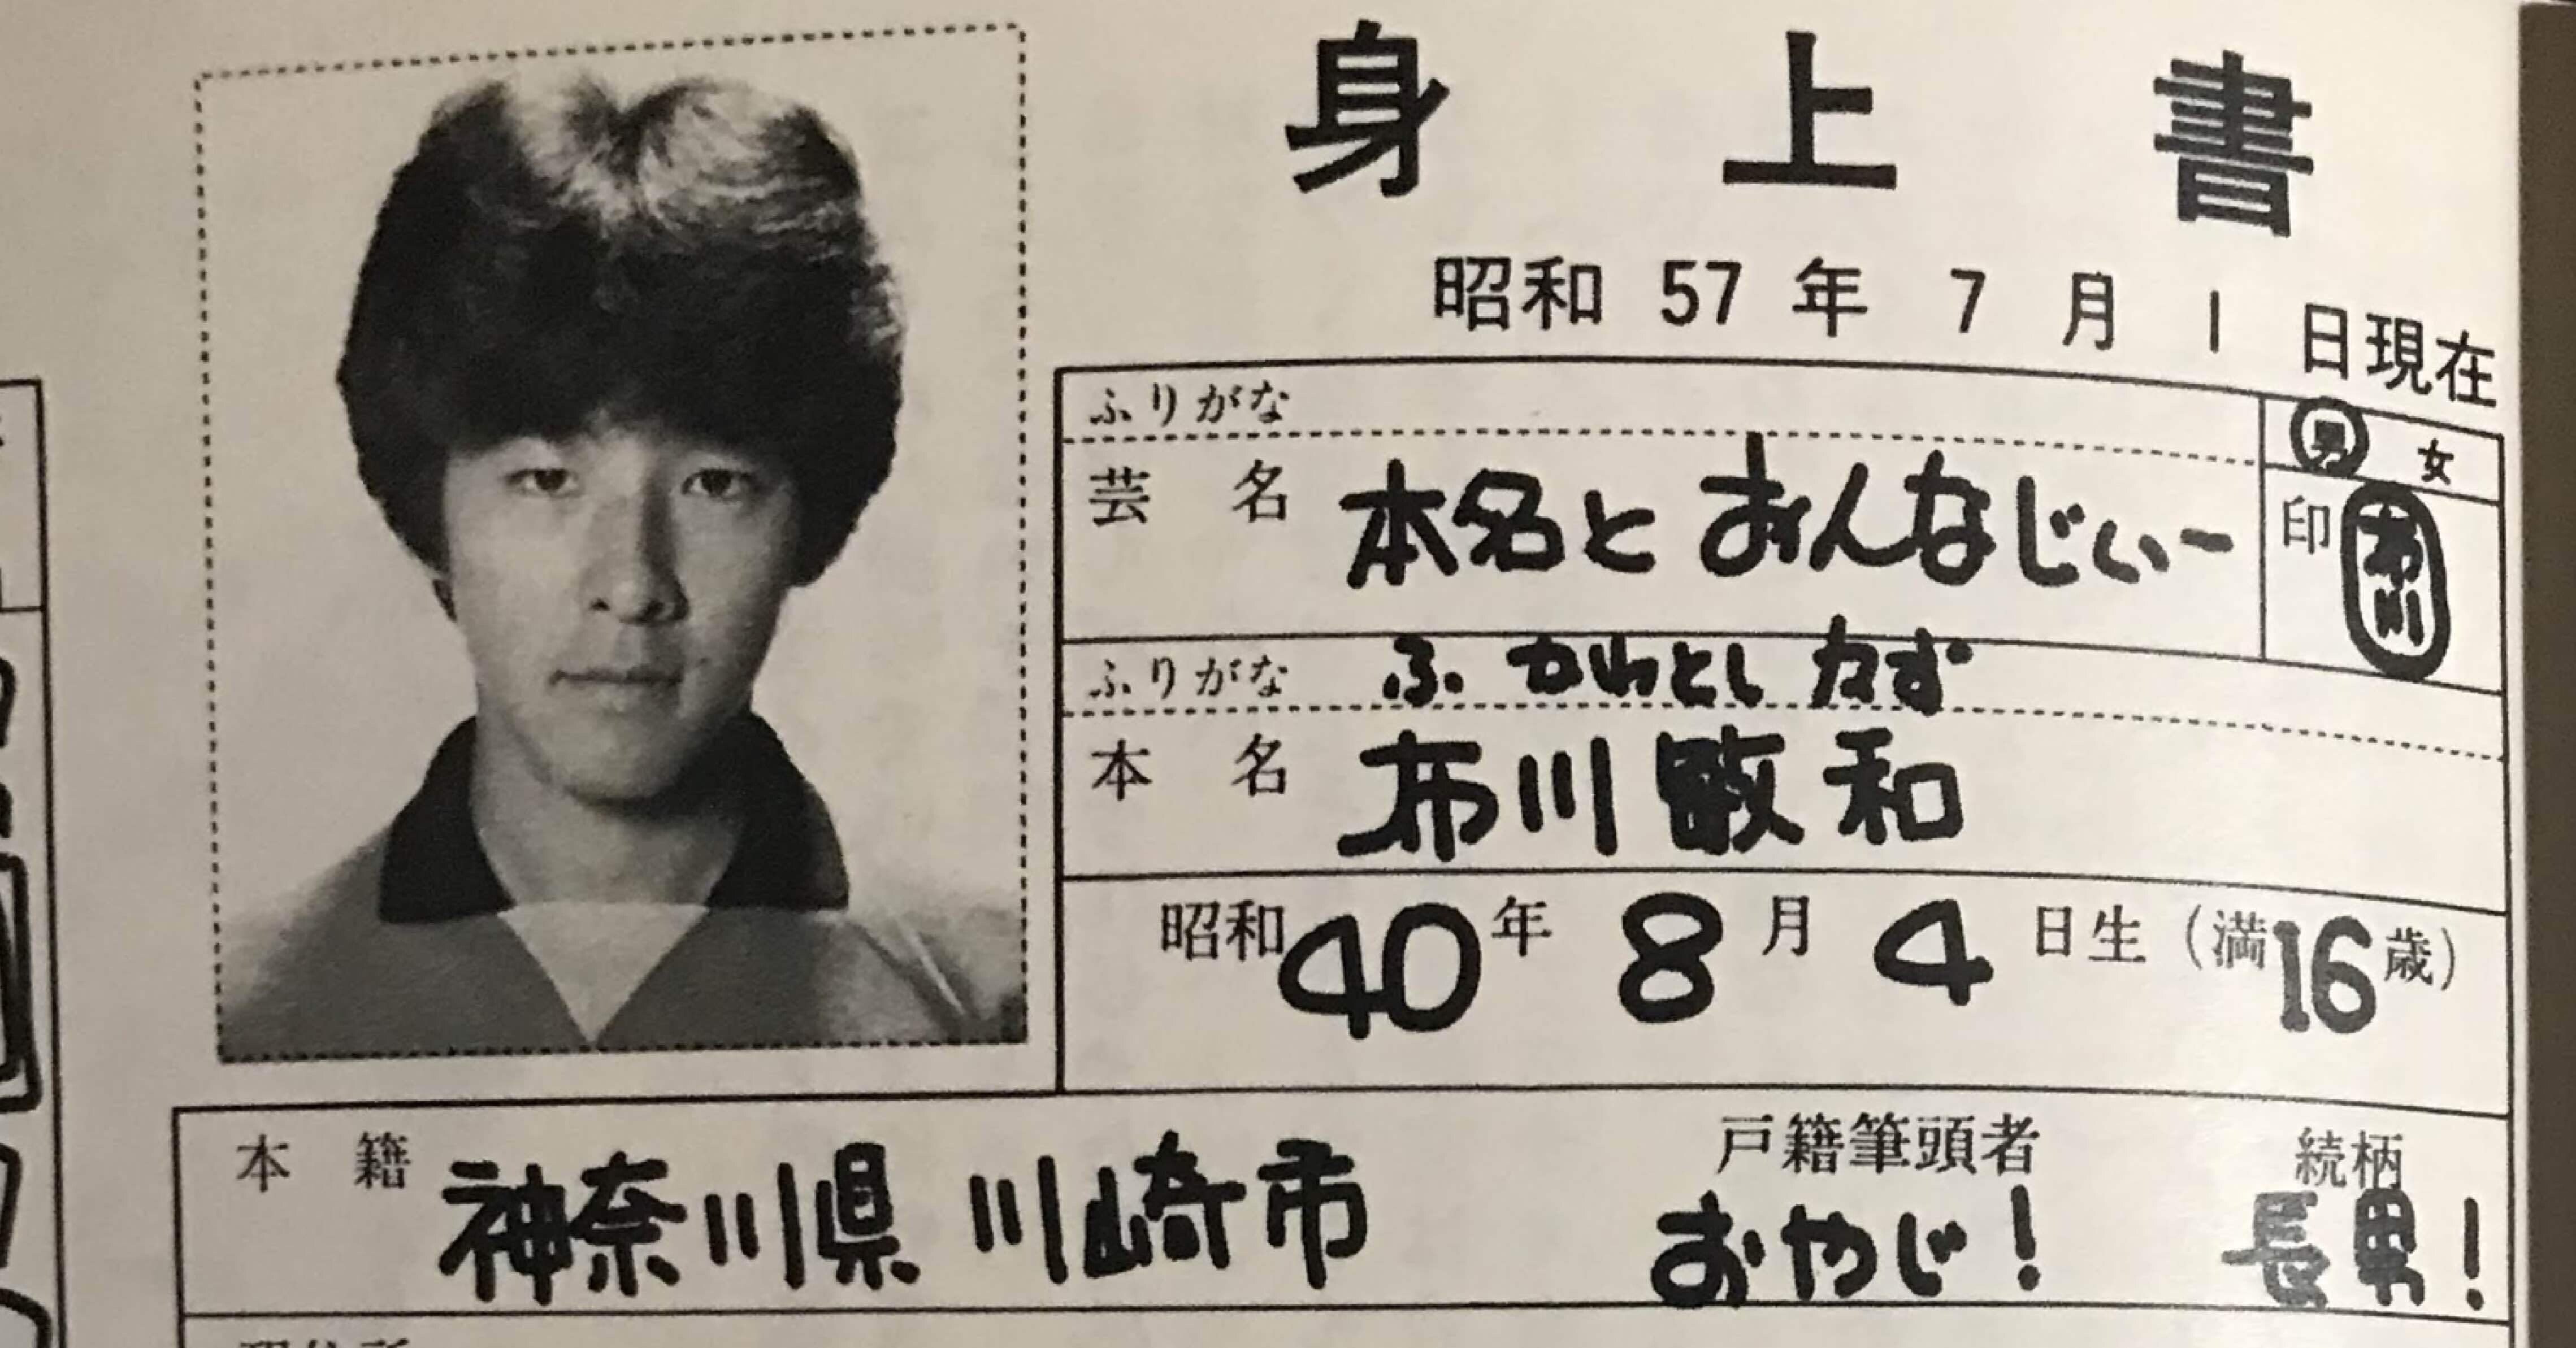 身上書
昭和 57 年 7 月 1 日現在
ふりがな
男 女
芸名 本名と おんなじぃー
印 布川
ふりがな ふ かわとし かず
本名 布川敏和
昭和40年 8月 4日生(満16歳)
本籍 神奈川県 川崎市
戸籍筆頭者 おやじ!
続柄 長男!